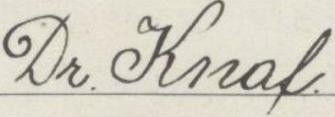 Dr. Knaf.